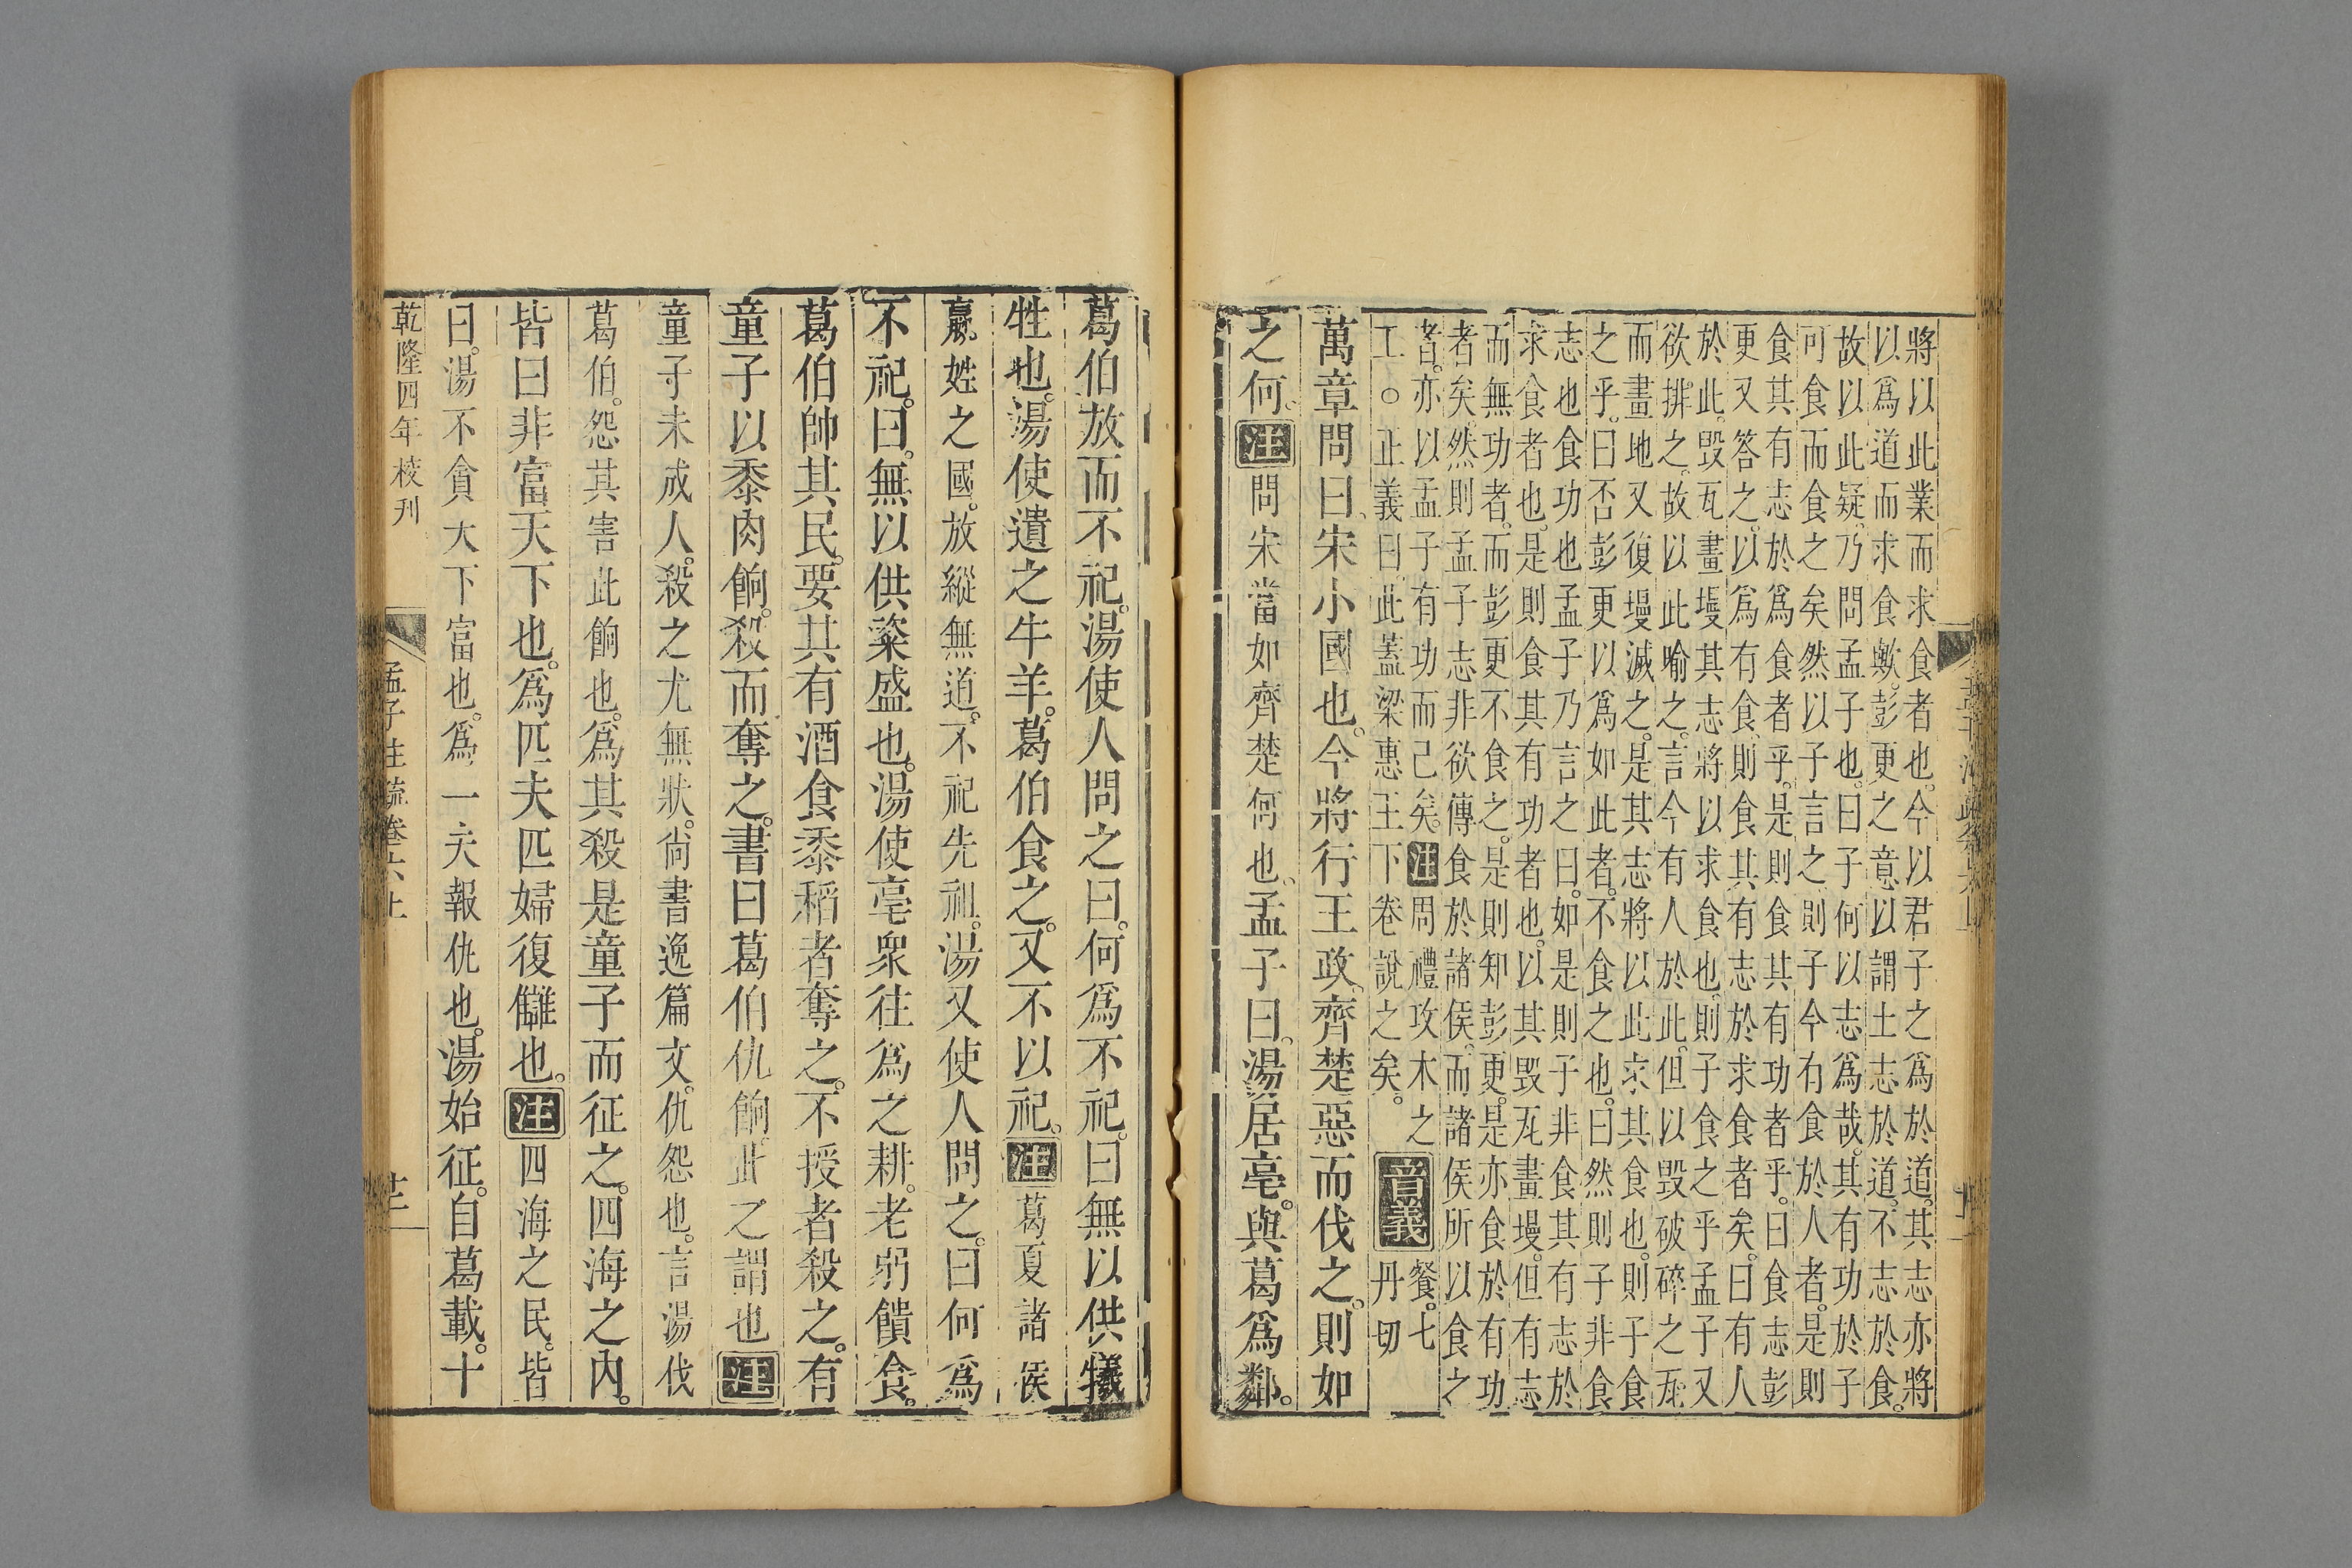 將以此業而求食者也。今以君子之爲於道。其志亦將
以爲道而求食歟。彭更之意以謂士志於道。不志於食。
故以此疑。乃問孟子也。曰子何以志爲哉。其有功於子
可食而食之矣然以子言之則子今有食於人者。是則
食其有志於爲食者乎。是則食其有功者乎。曰食志彭
更又答之。以爲有食則食其有志於求食者矣。曰有人
於此。毀瓦畫墁其志將以求食也。則子食之乎孟子又
欲排之。故以此喻之。言今有人於此。但以毀破碎之瓦
而畫地又復墁滅之。是其志將以此求其食也。則子食
之乎。曰否彭更以爲如此者。不食之也。曰然則子非食
志也食功也孟子乃言之曰。如是則子非食其有志於
求食者也。是則食其有功者也。以其毀瓦畫墁。但有志
而無功者。而彭更不食之。是則知彭更。是亦食於有功
者矣。然則孟子志非欲傳食於諸侯。而諸侯所以食之
者。亦以孟子有功而已矣。注周禮攻木之
工○正義曰此蓋梁惠王下卷說之矣。
音義餐。七
丹切
萬章問曰宋小國也。今將行王政。齊楚惡而伐之。則如
之何。注問宋當如齊楚何也。孟子曰。湯居亳。與葛爲鄰。
葛伯放而不祀。湯使人問之曰。何爲不祀。曰無以供犧
牲也。湯使遺之牛羊。葛伯食之。又不以祀。注葛夏諸侯
嬴姓之國。放縱無道。不祀先祖。湯又使人問之。曰何爲
不祀。曰。無以供粢盛也。湯使亳衆往爲之耕。老弱饋食。
葛伯帥其民。要其有酒食黍稻者奪之。不授者殺之。有
童子以黍肉餉。殺而奪之。書曰葛伯仇餉。此之謂也注
童子未成人。殺之尤無狀。尚書逸篇文。仇怨也。言湯伐
葛伯。怨其害此餉也。爲其殺是童子而征之。四海之內。
皆曰非富天下也。爲匹夫匹婦復讎也。注四海之民。皆
曰。湯不貪天下富也。爲一夫報仇也。湯始征。自葛載。十
乾隆四年校刊
孟子注疏卷六上